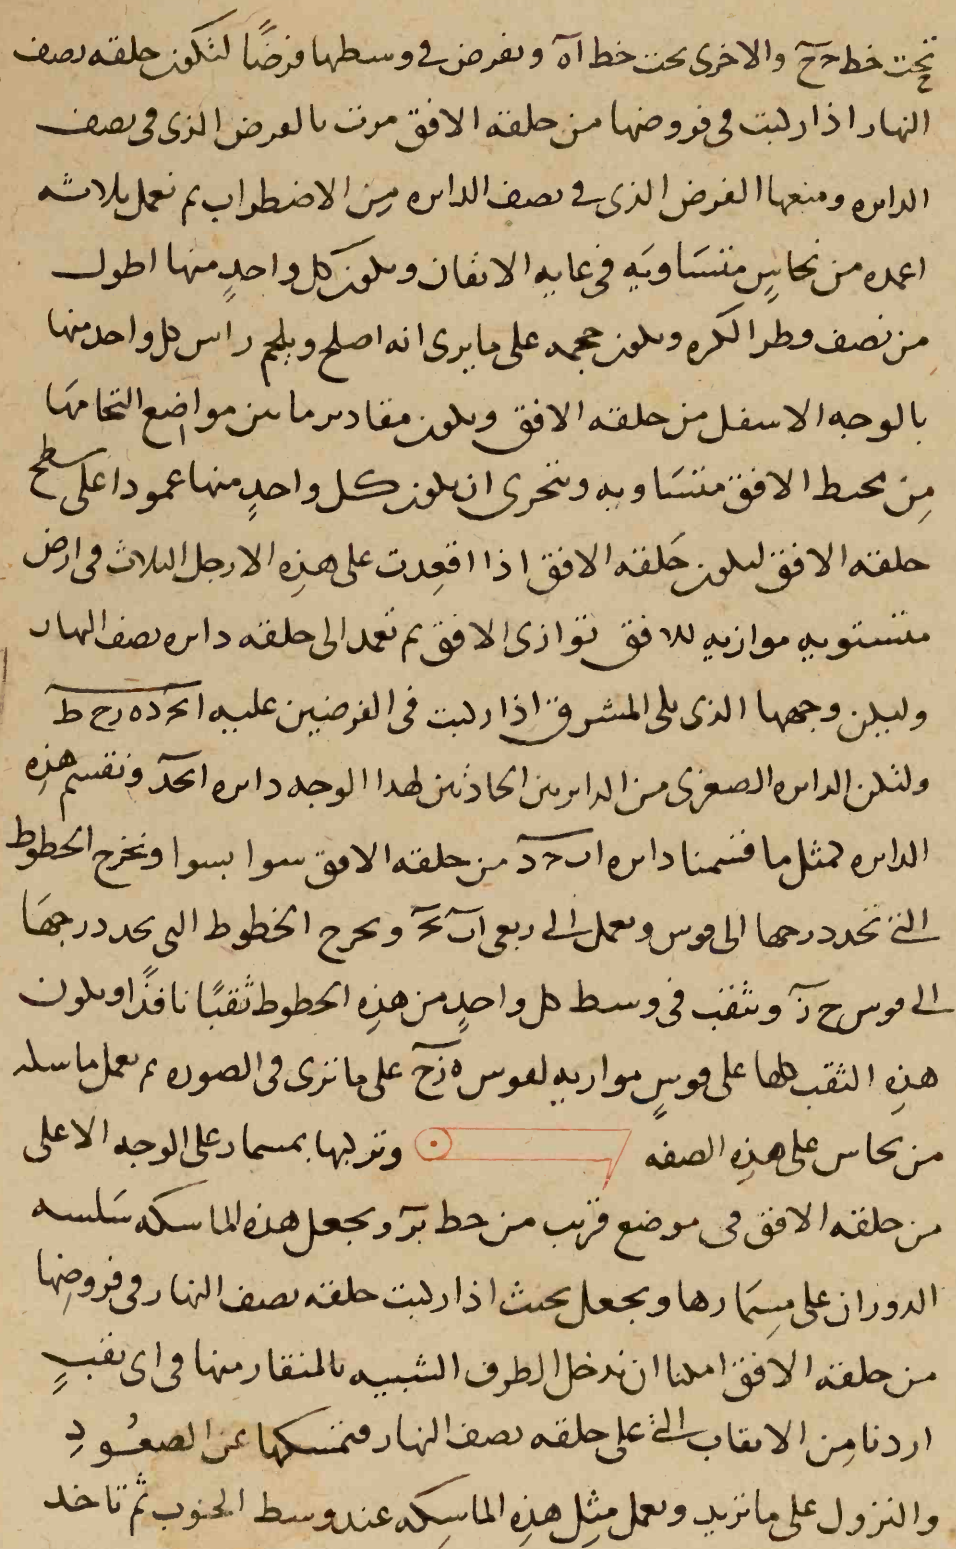 تحت خط حح والاخرى تحت خط اه ونفرض في وسطها فرضًا لتكون حلقه نصف
النهار اذا ركبت في فروضها من حلقه الافق مرت بالفرض الذى فى نصف
الدايره ومنعها الفرض الذى فى نصف الدايره مِن الاضطراب ثم نعمل ثلاثه
اعمده من نحاسٍ متسَاويَه فى غايه الاتقان ويكون كل واحدٍ منها اطول
من نصف قطر الكره ويكون حجمه على ما يرى انه اصلح ويلحم راس كل واحد منها
بالوجه الاسفل من حلقه الافق ويكون مقادير ما بين مواضع التحامهَا
مِن محيط الافق متسَاويه ونتحرى ان يكون كل واحدٍ منها عمودا على سطح
حلقه الافق ليكون حَلقه الافق اذا اقعِدت على هذِه الارجل الثلاث فى ارض
مستويه موازيه للافق توازى الافق ثم نعمد الى حلقه دايره نصف النهار
وليكن وجهها الذى يلى المشرق اذا ركبت فى الفرضين عليه ابحده زح ط
ولتكن الدايره الصغرى من الدايرتين الحادثتين لهذا الوجه دايره ابحد ونقسم هذِه
الدايره بمثل ما قسمنا دايره اب حد من حلقه الافق سوا بسوا ونخرج الخطوط
التى تحدد درجها الى قوس ونعمل الى ربعى اب بح ونخرج الخطوط التى تحدد درجهَا
الى قوس ح ز ونثقب فى وسط كل واحدٍ من هذِه الخطوط ثقبًا نافذًا ويكون
هذِه الثقب كلها على قوسٍ موازيه لقوس ه زح على ما ترى فى الصوره ثم نعمل ماسكه
من نحاس على هذِه الصفه ونركبها بمسمار على الوجه الاعلى
من حلقه الافق فى موضع قريب من خط بر ونجعل هذه الماسكه سَلسه
الدوران على مِسمَارها ونجعل بحيث اذا ركبت حلقه نصف النهار فى فروضِها
من حلقه الافق امكننا ان ندخل الطرف الشبيه بالمنقار منها فى اى ثقبٍ
اردنا مِن الاثقاب التى على حلقه نصف النهار فتمسكها عن الصعُودِ
والنزول على ما نريد ونعمل مِثل هذِه الماسِكه عند وسط الجنوب ثم تاخذ